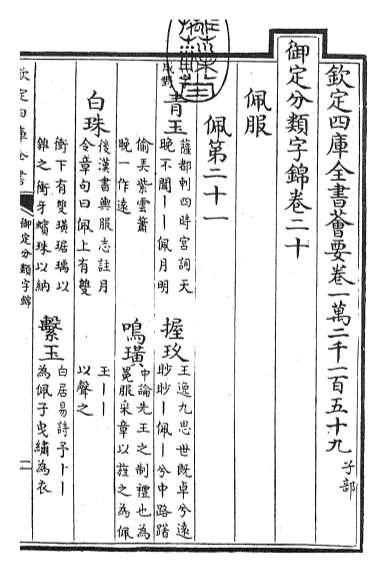 欽定四庫全書薈要卷一萬二千一百五十九 子部
御定分類字錦卷二十
佩服
佩第二十一
成對
青玉
薩都剌四時宮詞天
晚不聞丨丨佩月明
偷弄紫雲簫
晚一作遠
握玖
王逸九思世既卓兮遠
眇眇丨佩丨兮中路躇
鳴璜
中論先王之制禮也為
冕服采章以旌之為佩
玉丨丨
以聲之
白珠
後漢書輿服志註月
令章句曰佩上有雙
衡下有雙璜琚瑀以
雜之衝牙蠙珠以納
繫玉
白居易詩予丨丨
為佩子曳繡為衣
欽定四庫全書
御定分類字錦
一